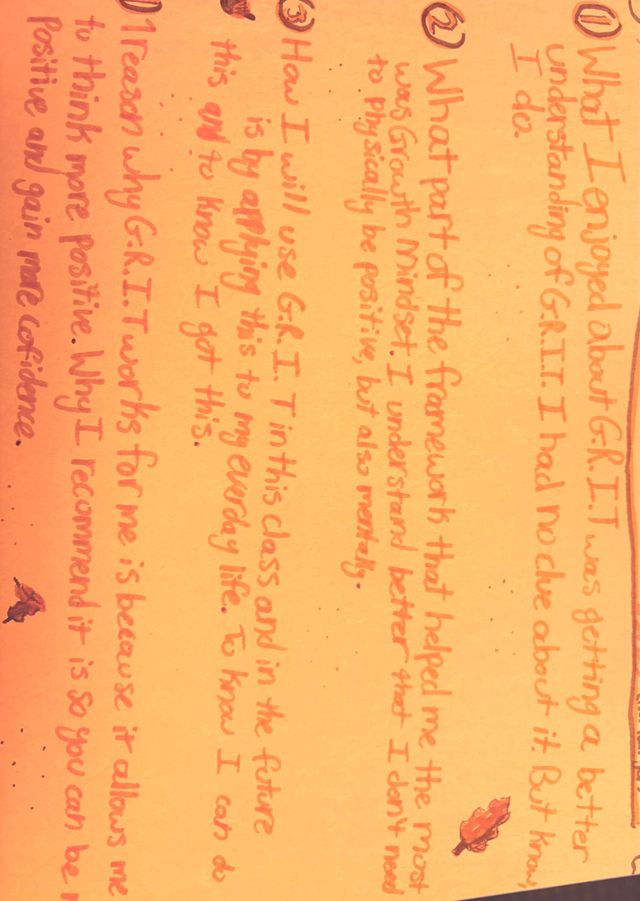 ① What I enjoyed about G.R.I.T was getting a better
understanding of G.R.I.T. I had no clue about it. But know,
I do.
② What part of the framework that helped me the most
was Growth mindset. I understand better that I don't need
to physically be positive, but also mentally.
③ How I will use G.R.I.T in this class and in the future
is by applying this to my everday life. To know I can do
this and to know I got this.
1 reason why G.R.I.T works for me is because it allows me
to think more positive. Why I recommend it is so you can be
Positive and gain more cofidence.